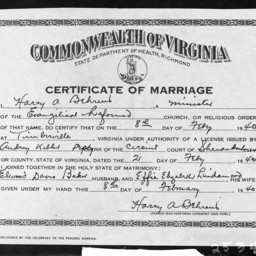 COMMONWEALTH OF VIRGINIA
STATE DEPARTMENT OF HEALTH, RICHMOND
CERTIFICATE OF MARRIAGE
I, Harry A Behrens, minister
Evangelical Reformed CHURCH, OR RELIGIOUS ORDER
OF THAT NAME, DO CERTIFY THAT ON THE 8th Feby 1940
at Timberville VIRGINIA UNDER AUTHORITY OF A LICENSE ISSUED
Circuit COURT OF Shenandoah
OR COUNTY, STATE OF VIRGINIA, DATED THE 2 Feby 1940
I JOINED TOGETHER IN THE HOLY STATE OF MATRIMONY:
Elwood Davis Baker HUSBAND, AND Effie Elizabeth Lindamood HIS WIFE
GIVEN UNDER MY HAND THIS 8th February 1940
Harry A Behrens
(PERSON WHO PERFORMS CEREMONY SIGN HERE.)
DELIVERED BY THE CELEBRANT TO THE PERSONS MARRIED